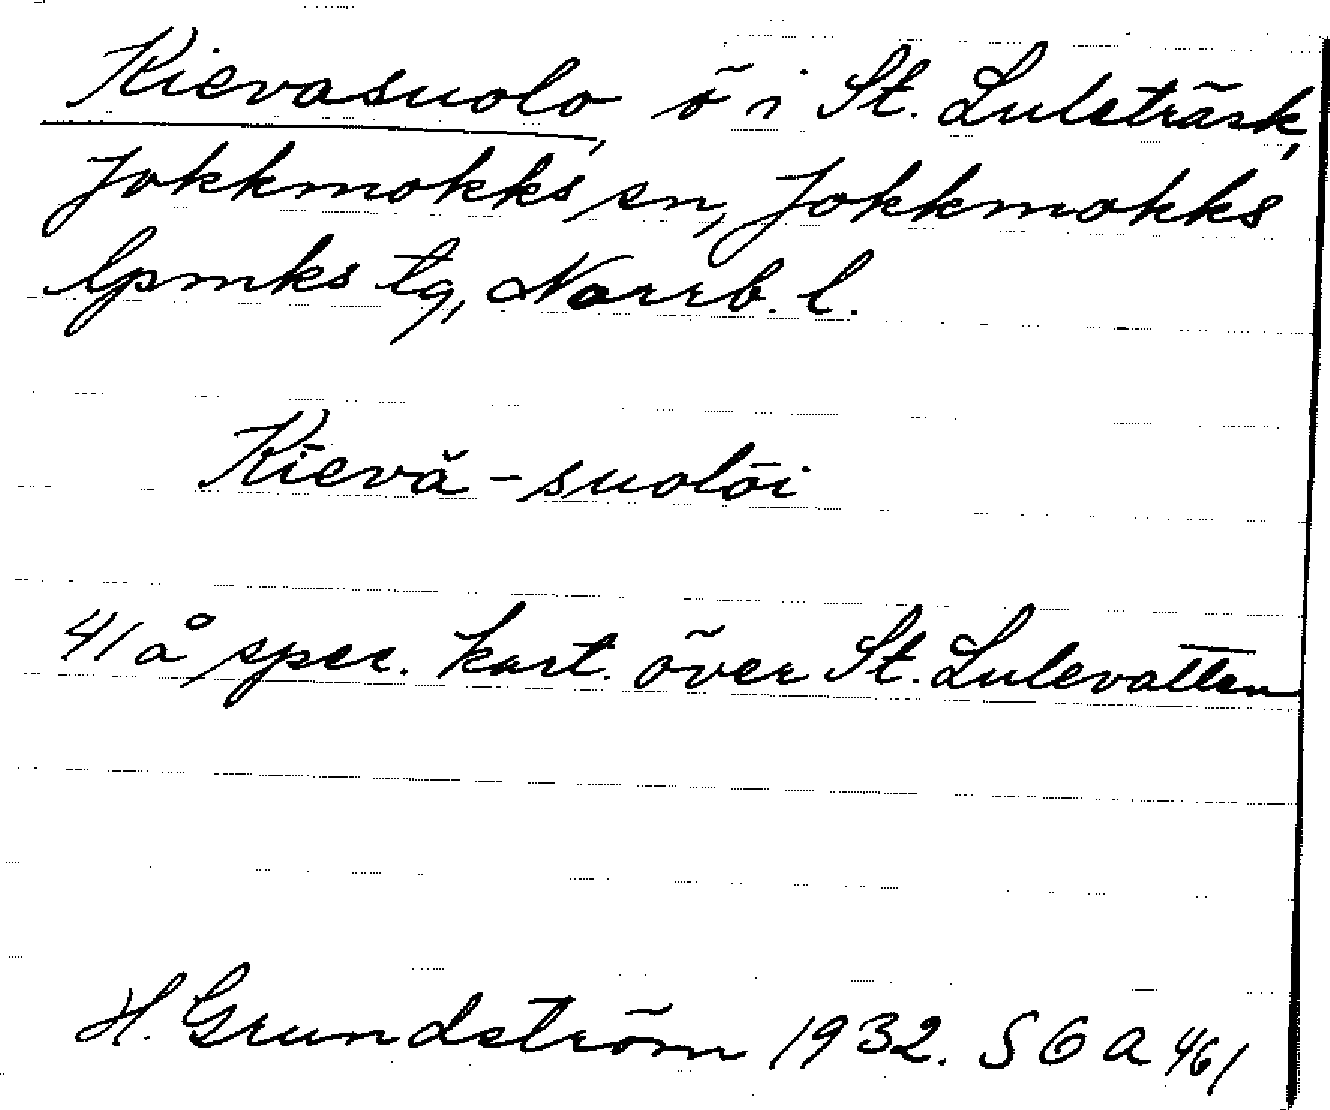 Kievasuolo, ö i St. Luleträsk,
Jokkmokks sn, Jokkmokks
lpmks tg, Norrb. l.
Kīevă-suolōi
41 å spec. kart. över St. Lulevatten
H. Grundström 1932. S O A 461